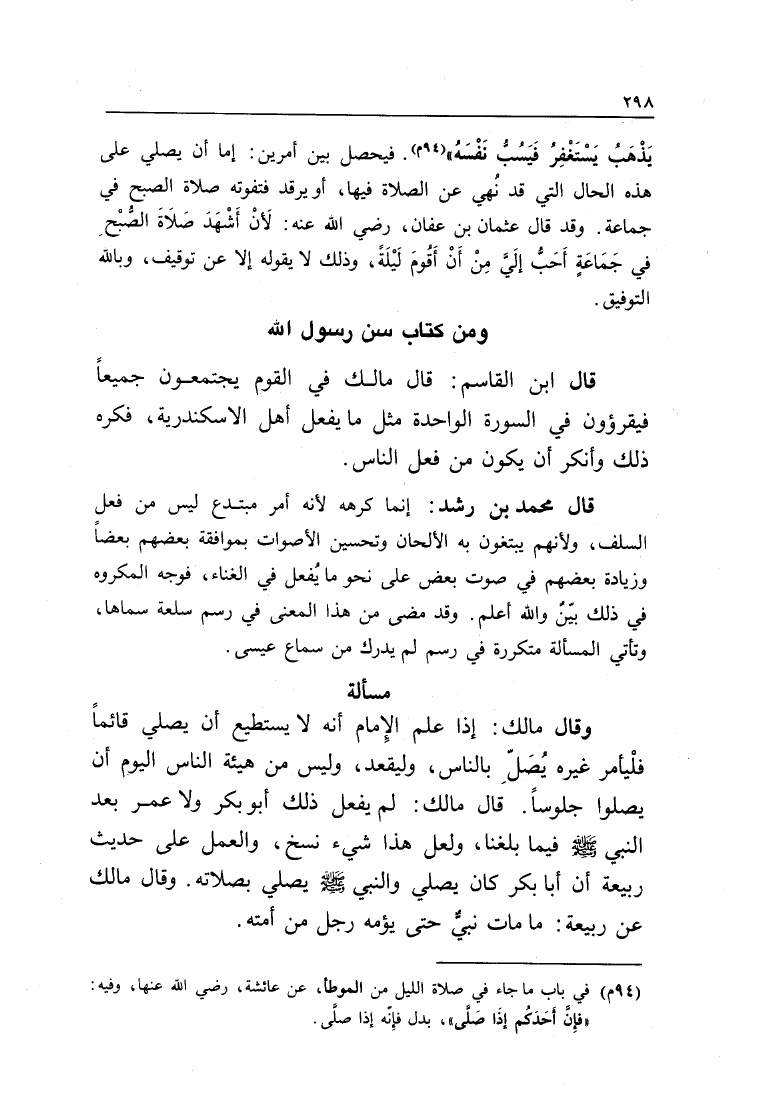 ٢٩٨
يَذْهَبُ يَسْتَغْفِرُ فَيَسُبُّ نَفْسَهُ»(٩٤م). فيحصل بين أمرين: إما أن يصلي على
هذه الحال التي قد نُهي عن الصلاة فيها، أو يرقد فتفوته صلاة الصبح في
جماعة. وقد قال عثمان بن عفان، رضي الله عنه: لَأنْ أَشْهَدَ صَلَاةَ الصُّبْحِ
في جَمَاعَةٍ أَحَبُّ إلَيَّ مِنْ أَنْ أَقُومَ لَيْلَةً، وذلك لا يقوله إلا عن توقيف، وبالله
التوفيق.
ومن كتاب سن رسول الله
قال ابن القاسم: قال مالك في القوم يجتمعون جميعاً
فيقرؤون في السورة الواحدة مثل ما يفعل أهل الاسكندرية، فكره
ذلك وأنكر أن يكون من فعل الناس.
قال محمد بن رشد: إنما كرهه لأنه أمر مبتدع ليس من فعل
السلف، ولأنهم يبتغون به الألحان وتحسين الأصوات بموافقة بعضهم بعضاً
وزيادة بعضهم في صوت بعض على نحو ما يُفعل في الغناء، فوجه المكروه
في ذلك بيّنٌ والله أعلم. وقد مضى من هذا المعنى في رسم سلعة سماها،
وتأتي المسألة متكررة في رسم لم يدرك من سماع عيسى.
مسألة
وقال مالك: إذا علم الإمام أنه لا يستطيع أن يصلي قائماً
فلْيأمر غيره يُصَلِّ بالناس، وليقعد، وليس من هيئة الناس اليوم أن
يصلوا جلوساً. قال مالك: لم يفعل ذلك أبو بكر ولا عمر بعد
النبي ﷺ فيما بلغنا، ولعل هذا شيء نسخ، والعمل على حديث
ربيعة أن أبا بكر كان يصلي والنبي ﷺ يصلي بصلاته. وقال مالك
عن ربيعة: ما مات نبيٌّ حتى يؤمه رجل من أمته.
(٩٤م) في باب ما جاء في صلاة الليل من الموطأ، عن عائشة، رضي الله عنها، وفيه:
«فإنَّ أَحَدَكُم إذَا صَلَّى»، بدل فإنّه إذا صلَّى.